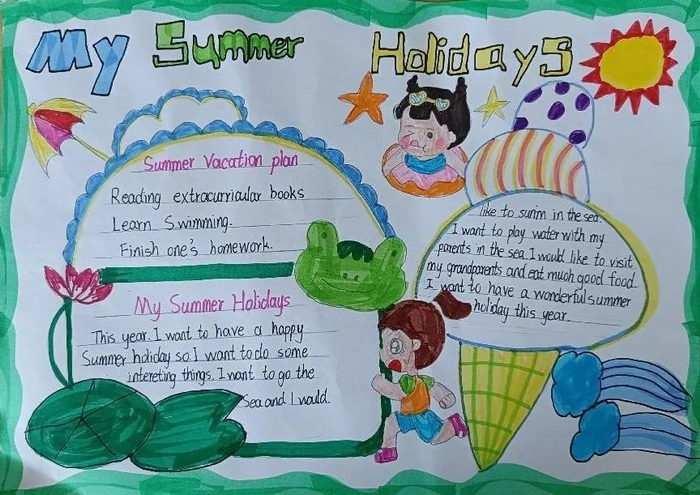 My Summer Holidays
Summer Vacation plan
Reading extracurricular books
Learn Swimming.
Finish one's homework.
My Summer Holidays
This year. I want to have a happy
Summer holiday so. I want to do some
intereting things. I want to go the
Sea and I would.
like to swim in the sea.
I want to play water with my
parents in the sea. I would like to visit
my grandparents and eat much good food.
I want to have a wonderful summer
holiday this year.